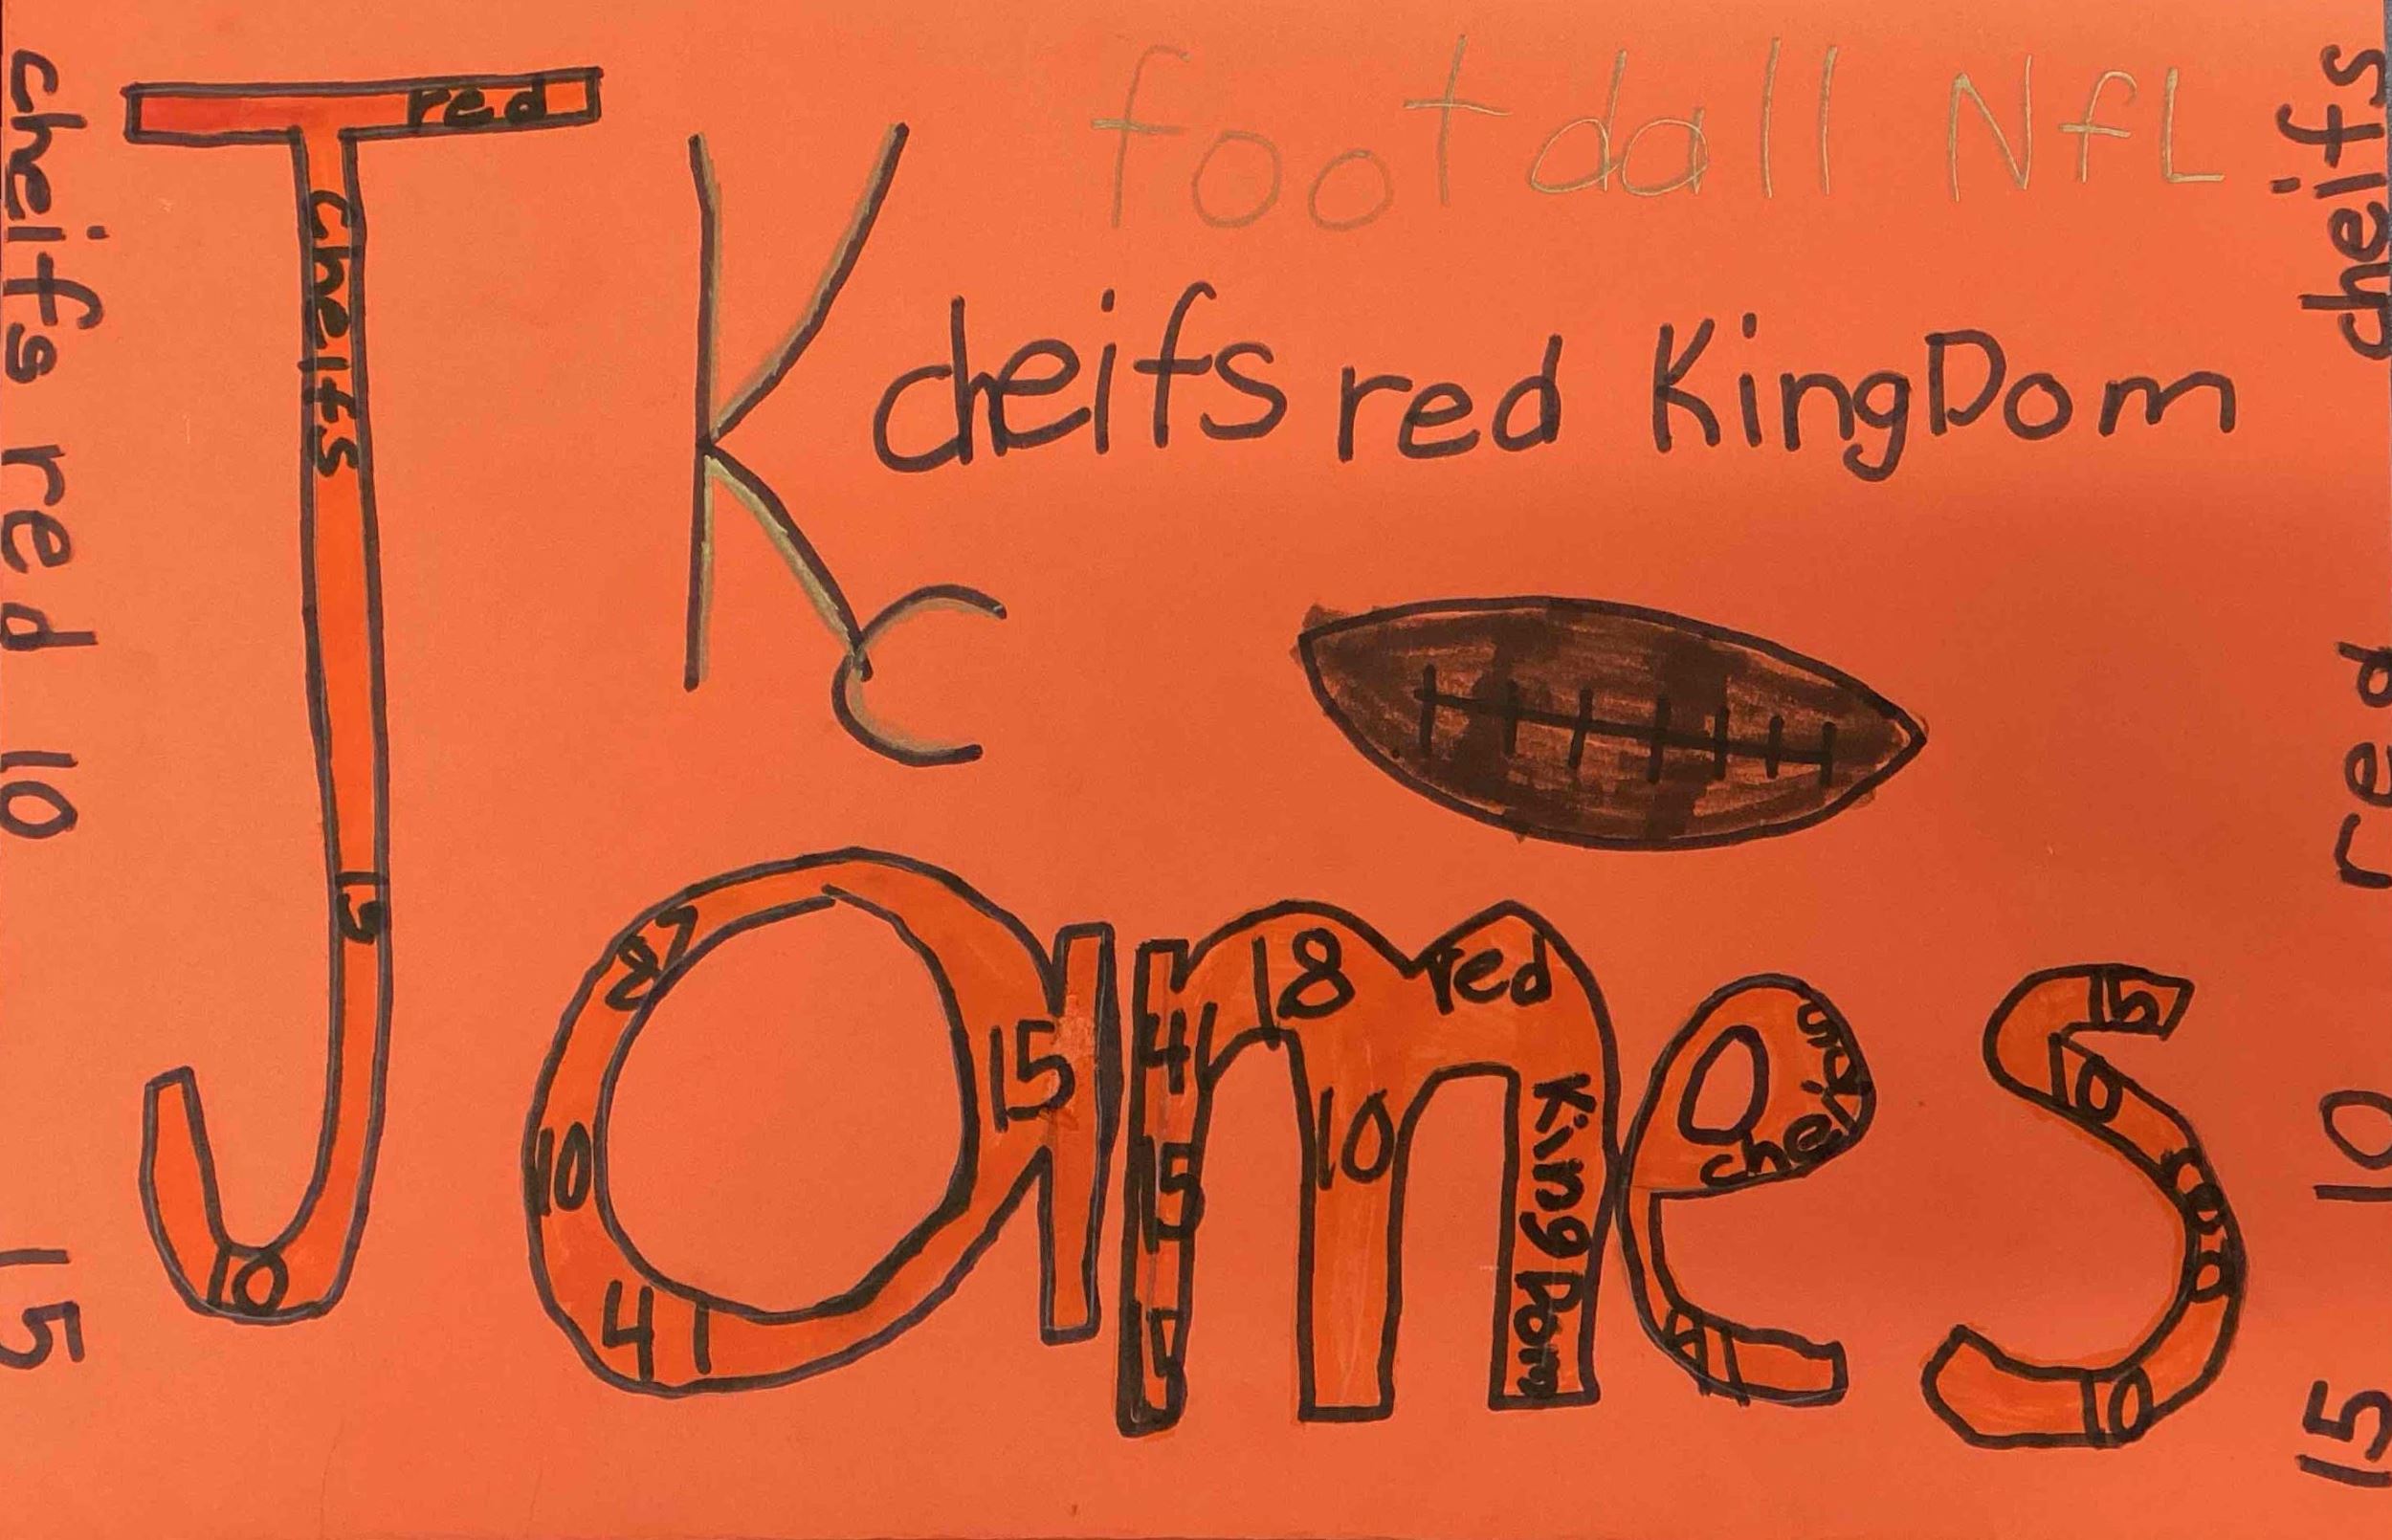 footdall NfL
KC
cheifs red KingDom
James
red
cheifs
15
10
87
10
41
15
4
15
15
18
red
10
KingDom
cheifs
41
15
10
red
10
cheifs red 10 15
cheifs red 10 15